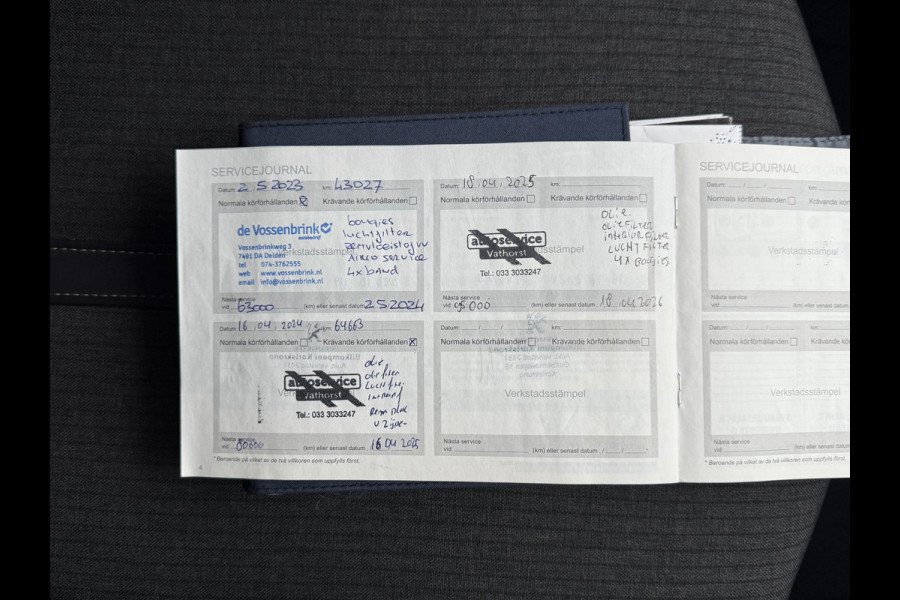 SERVICEJOURNAL
Datum: 2 5 2023 km: 43027
Normala körförhållanden Krävande körförhållanden
de Vossenbrink
autobedrijf
Vossenbrinkweg 3
7491 DA Delden
tel 074-3762555
web www.vossenbrink.nl
email info@vossenbrink.nl
Verkstadsstämpel
bougies
luchtfilter
airco service
4x band
Nästa service
vid 63000 (km) eller senast datum 2 5 2024
Datum: 16.04.2024 km: 64663
Normala körförhållanden Krävande körförhållanden
autoservice
Vathorst
Tel.: 033 3033247
olie
oliefilter
Rem
Nästa service
vid 80000 (km) eller senast datum 16 04 2025
* Beroende på vilket av de två villkoren som uppfylls först.
Datum: 18.04.2025 km:
Normala körförhållanden Krävande körförhållanden
autoservice
Vathorst
Tel.: 033 3033247
Verkstadsstämpel
OLIE
OLIEFILTER
INTERIOR FILTER
LUCHT FILTER
4X BOUGIES
Nästa service
vid (km) eller senast datum 18.04.2026
Datum: / / km:
Normala körförhållanden Krävande körförhållanden
Verkstadsstämpel
Nästa service
vid (km) eller senast datum / /
SERVICEJOURNAL
Datum: / / km:
Normala körförhållanden Krävande körförh
Verkstadsstämpel
Nästa service
vid (km) eller senast datum
Datum: / / km:
Normala körförhållanden Krävande körförh
Verkstadsstämpel
Nästa service
vid (km) eller senast datum
* Beroende på vilket av de två villkoren som uppfylls först.